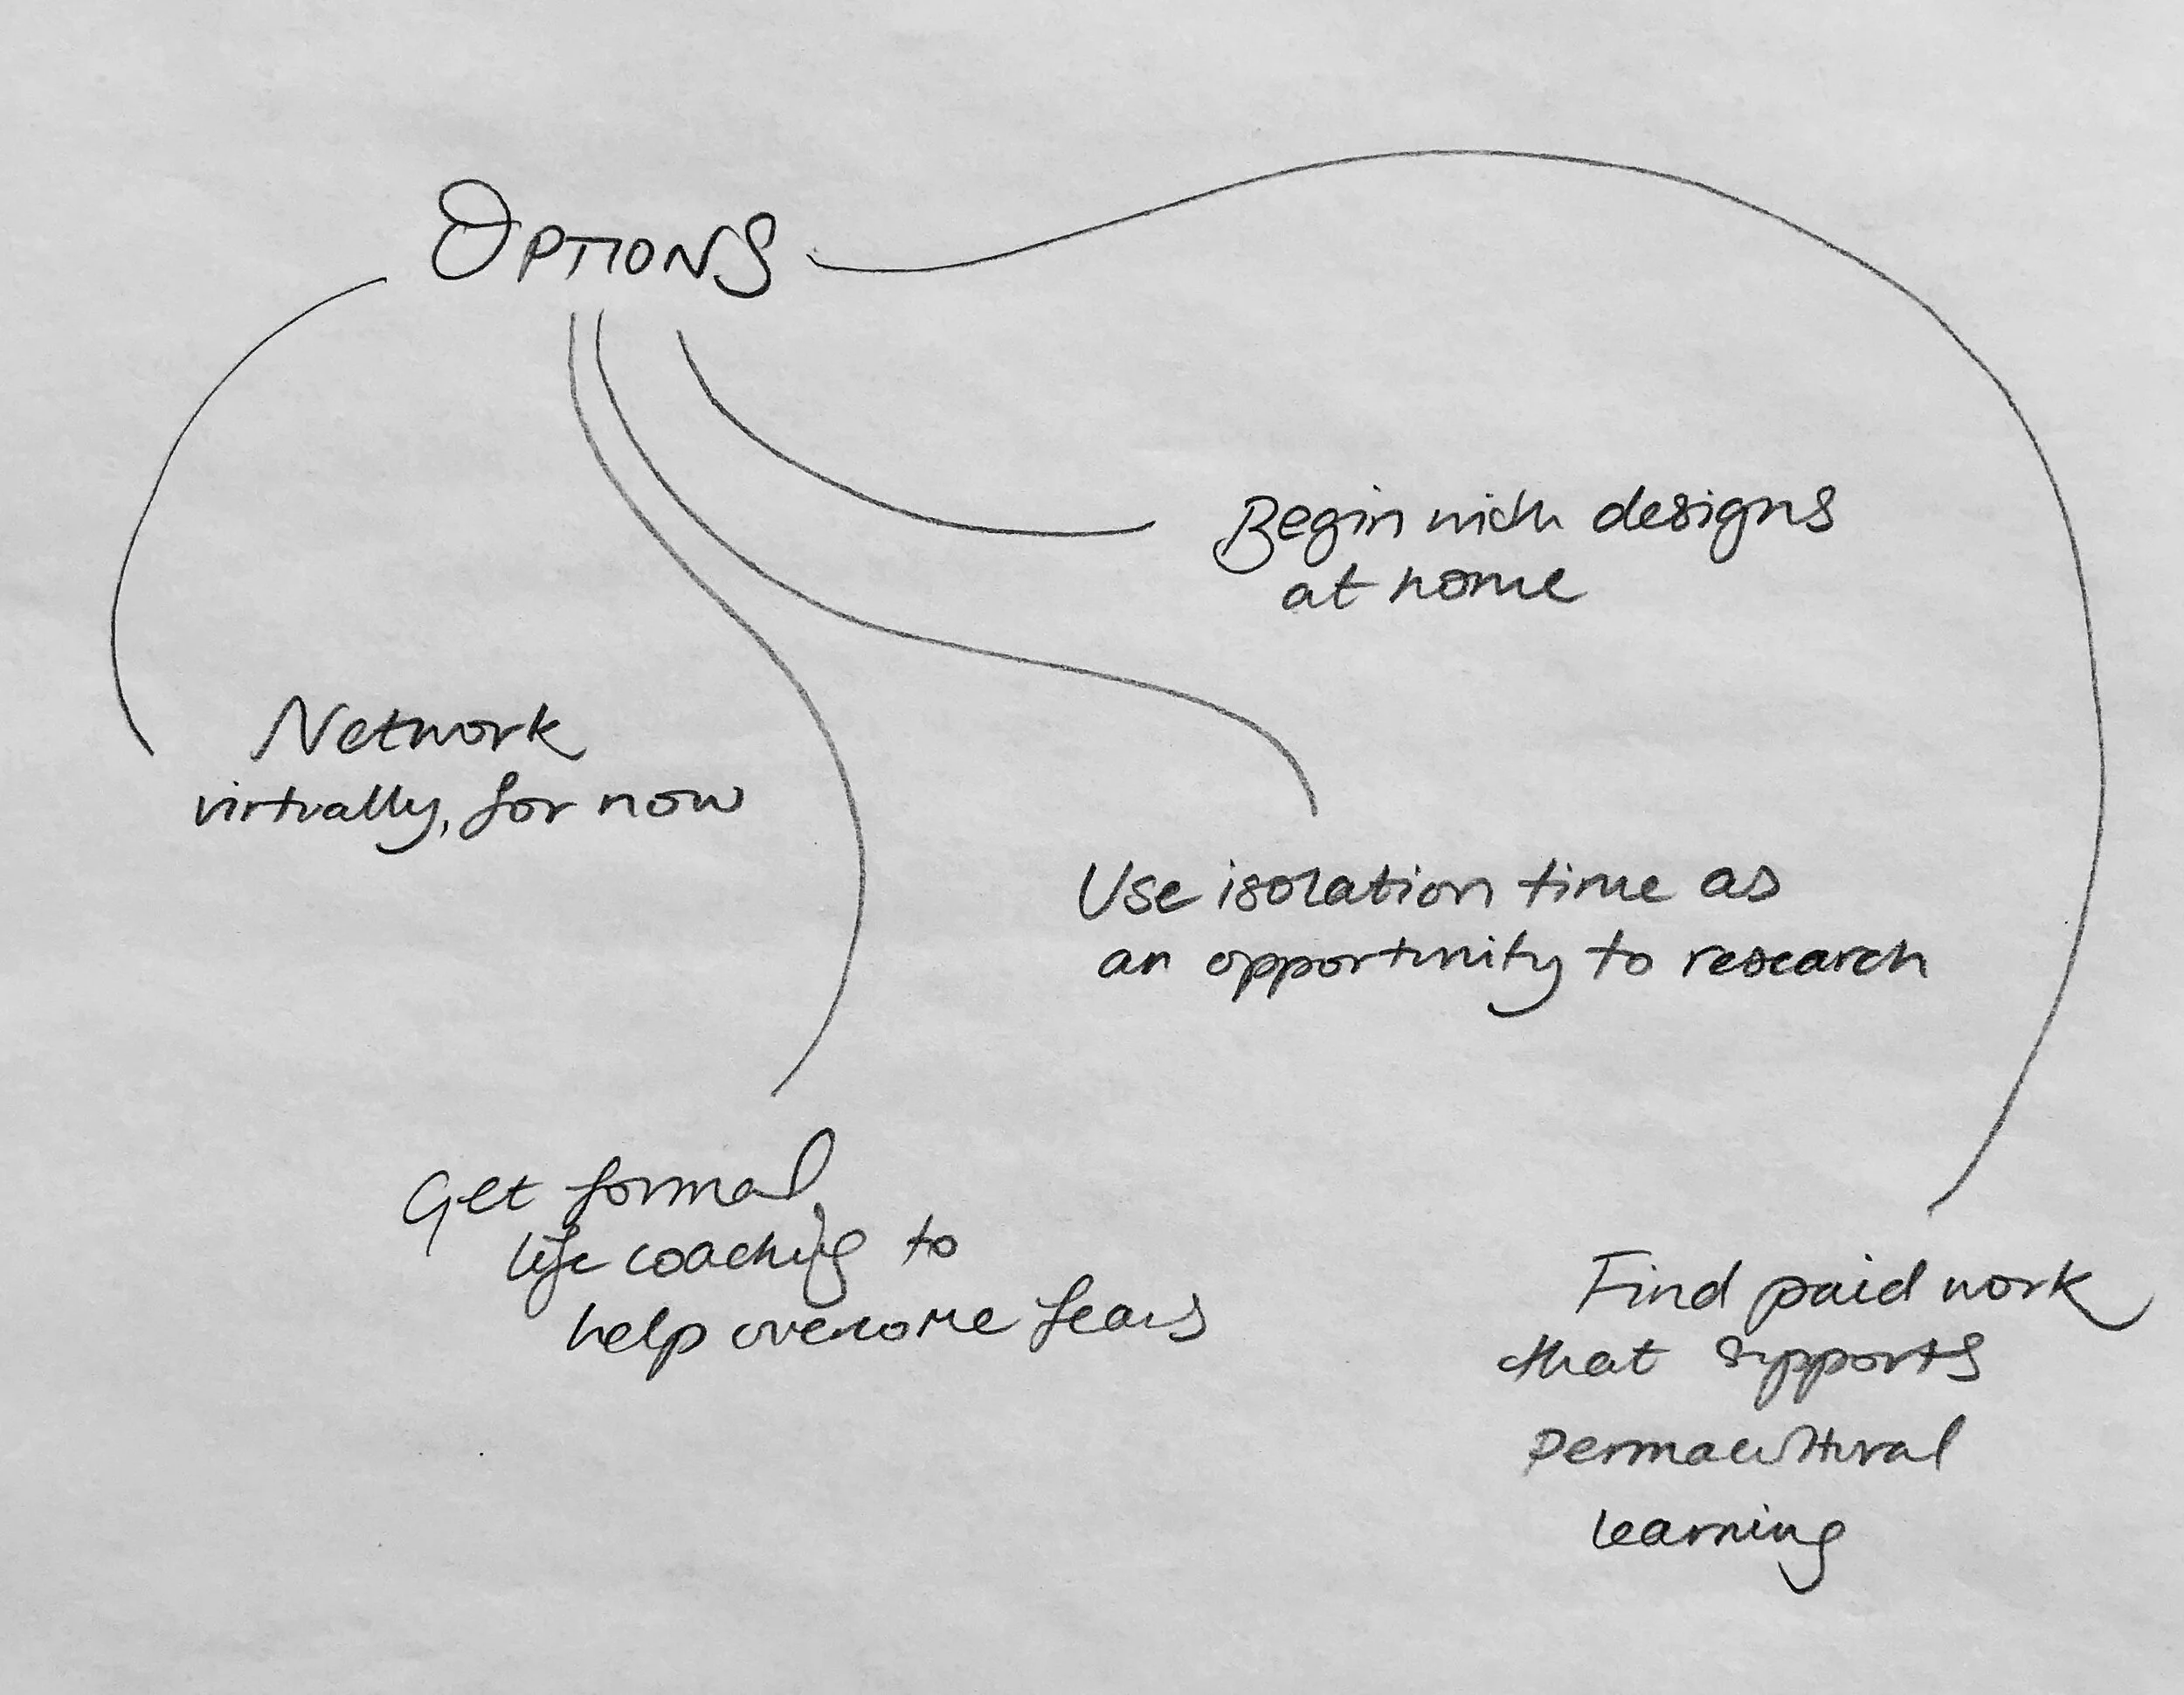 OPTIONS
Begin with designs
at home
Network
virtually, for now
Use isolation time as
an opportunity to research
Get formal
life coaching to
help overcome fears
Find paid work
that supports
permacultural
learning